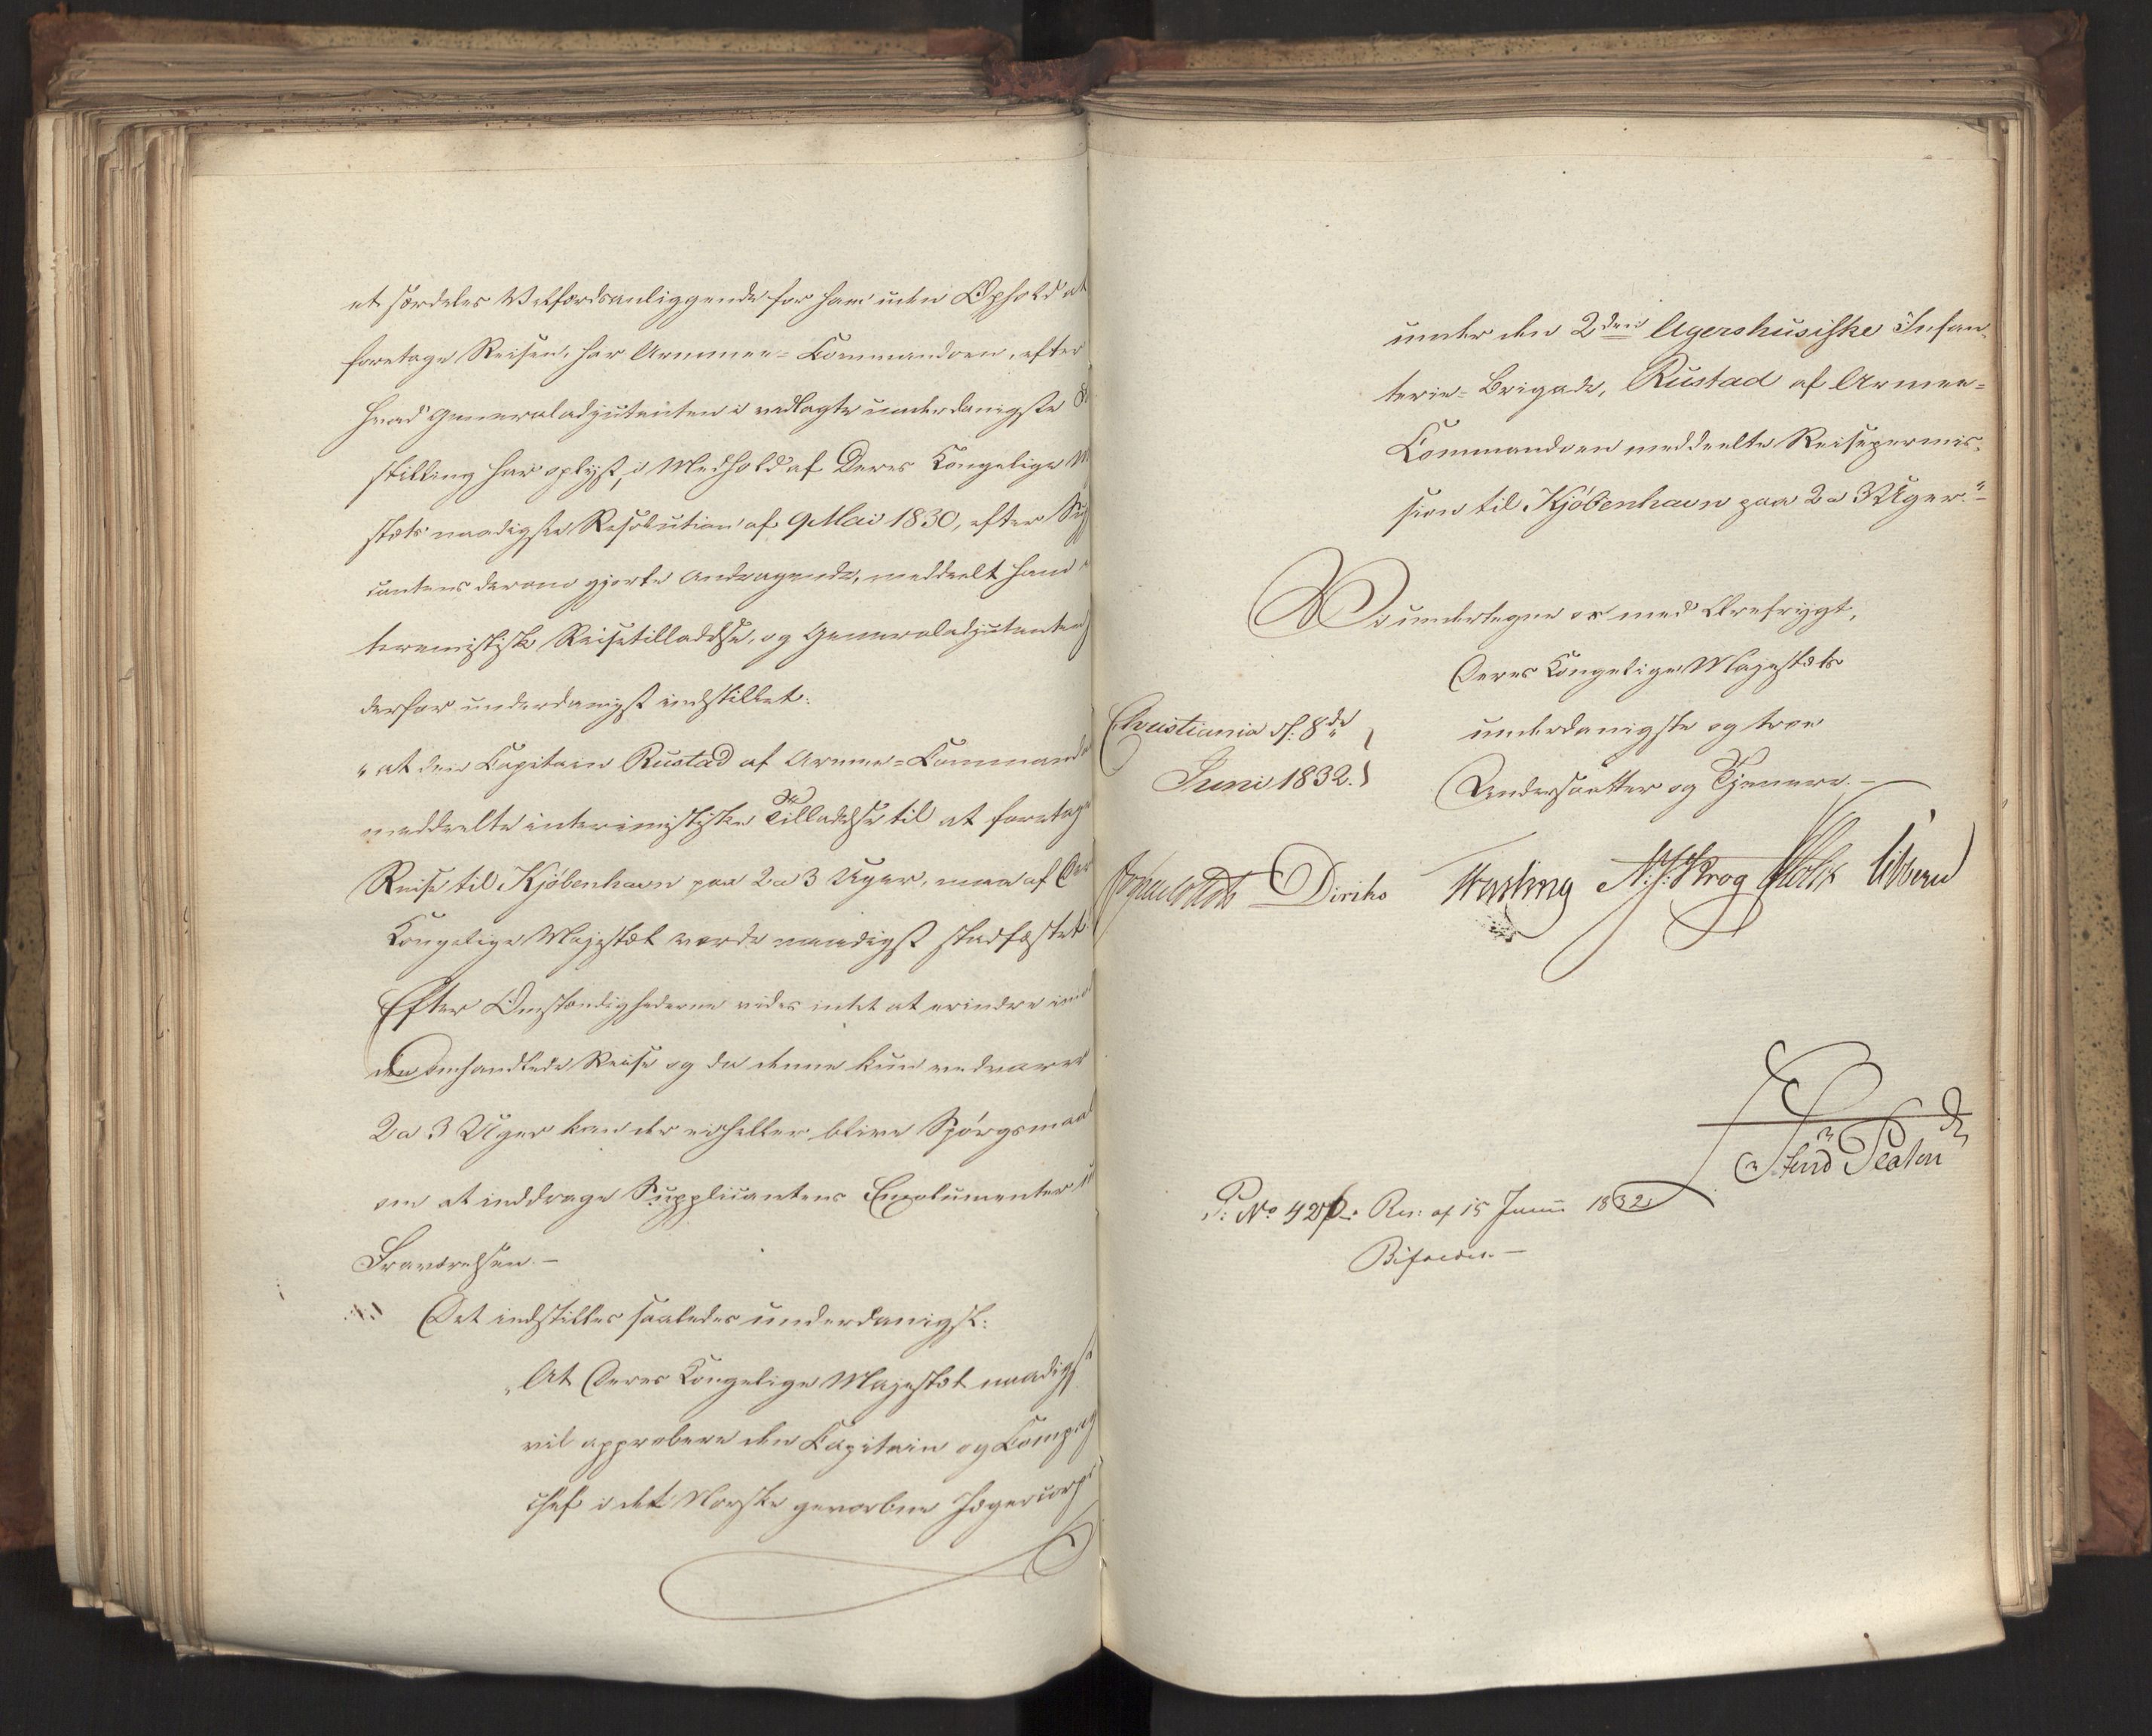 et særdeles Velfærdsanliggende for ham uden Ophold at
foretage Reisen, har Armmee-Commandoen, efter
hvad Generaladjutanten i vedlagte underdanigste
stilling har oplyst, i Medhold af Deres Kongelige M
stæts naadigste Resolution af 9 Mai 1830, efter Sup
cantens derom gjorte Andragende, meddeelt ham
terimistisk Reisetilladelse, og Generaladjutanten
derfor underdanigst indstillet:
"at den Capitain Rustad af Armee-Commando
meddeelte interimistiske Tilladelse til at foretage
Reise til Kjöbenhavn paa 2 a 3 Uger, maa af Der
Kongelige Majestæt vorde naadigst stadfæstet
Efter Omstændighederne vides intet at erindre imod
den omhandlede Reise og da denne kun vedvarer
2 a 3 Uger kan der ei heller blive Spörgsmaal
om at inddrage Supplicantens Emolumenter
Fraværelsen. —
Det indstilles saaledes underdanigst:
"At Deres Kongelige Majestæt naadigst
vil approbere den Capitain og Compag
chef i det Norske gevorbne Jægercorps
under den 2den Agershusiske Infan-
terie-Brigade, Rustad af Armee-
Commandoen meddeelte Reisepermis-
sion til Kjöbenhavn paa 2 a 3 Uger."
Vi undertegne os med Ærefrygt,
Deres Kongelige Majestæts
Christiania d. 8de
underdanigste og troe
Juni 1832.
Undersaatter og Tjenere. —
Diriks Fasting N. J. Krog Holst Vibe
P: No 426. Res: af 15 Junii 1832
Bifaldes. —